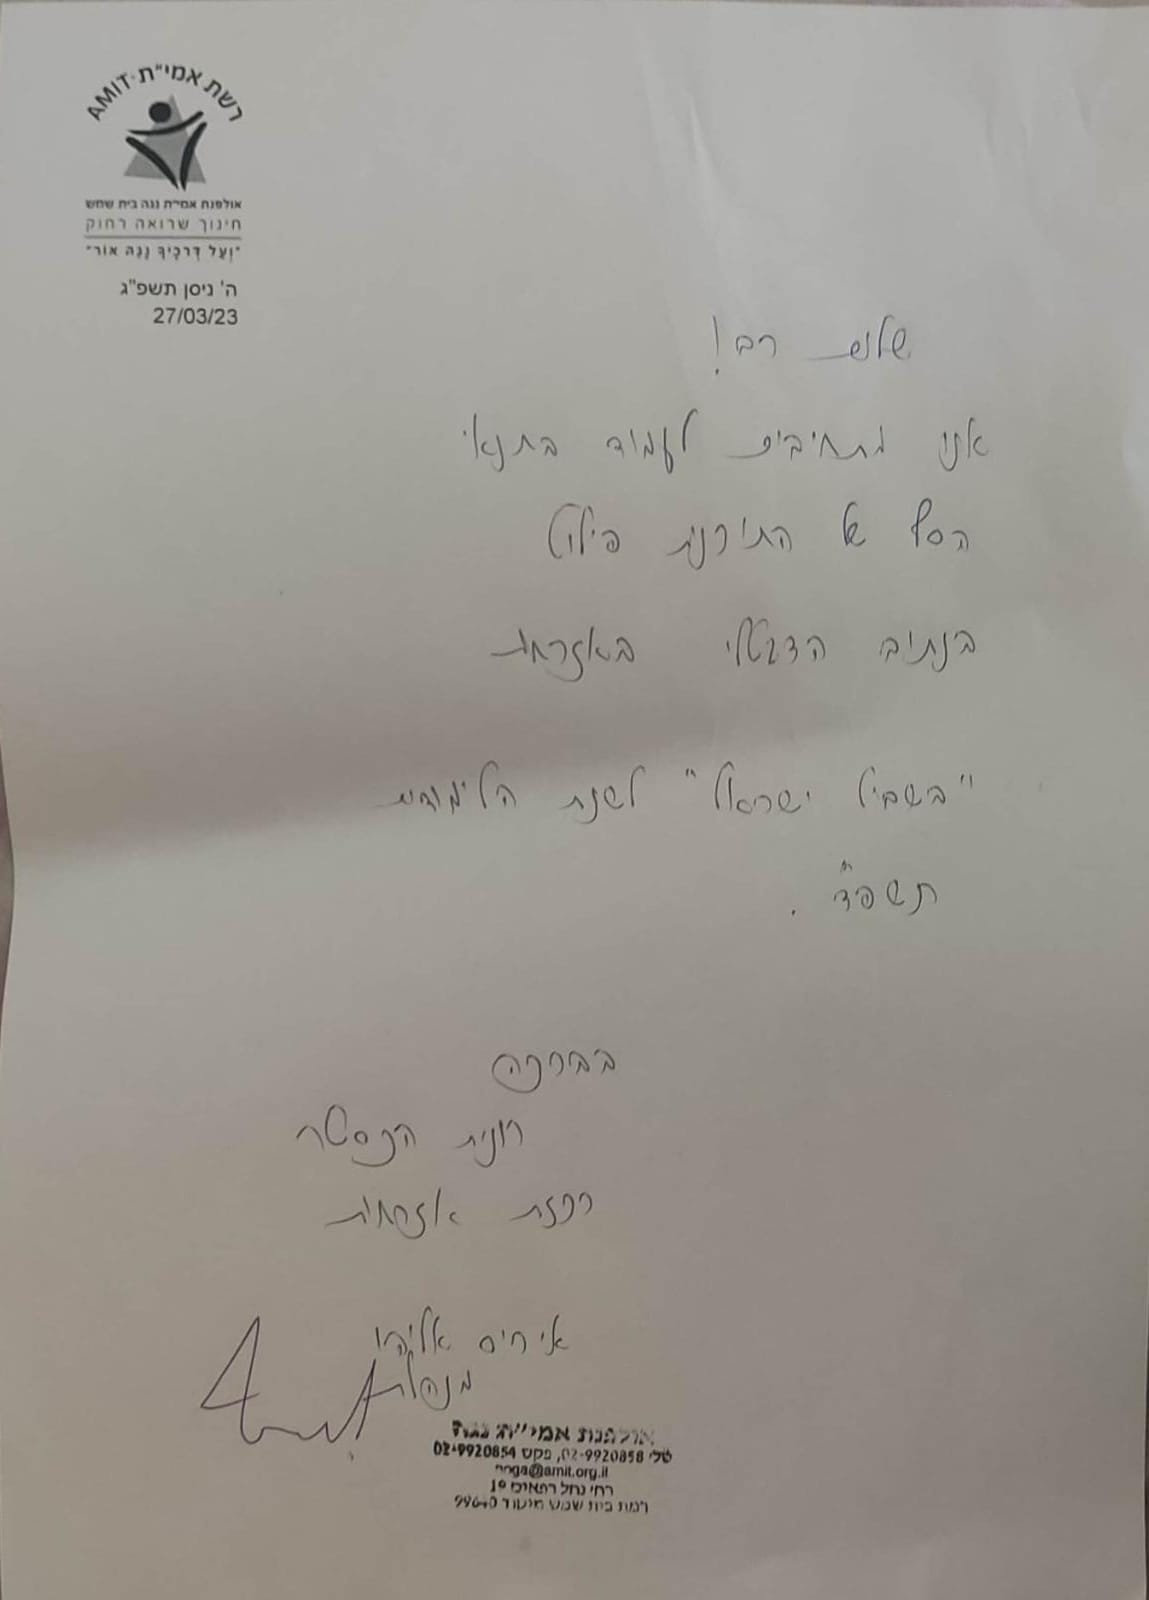 רשת אמי"ת AMIT
אולפנת אמי"ת נגה בית שמש
חינוך שרואה רחוק
"וְעַל דְּרָכֶיךָ נָגַהּ אוֹר"
ה' ניסן תשפ"ג
27/03/23
שלום רב!
אנו מתחייבים לעמוד בתנאי
הסף של התוכנית פילוט
בנתיב הדיגטלי באזרחות
"בשביל ישראל" לשנת הלימודים
תשפ"ד.
בברכה
רונית
רכזת אזרחות
אליהו
מנהלת
אולפנת אמי"ת נגה
טל' 02-9920858, פקס 02-9920854
noga@amit.org.il
רח' נחל רפאים 10
רמת בית שמש מיקוד 99640